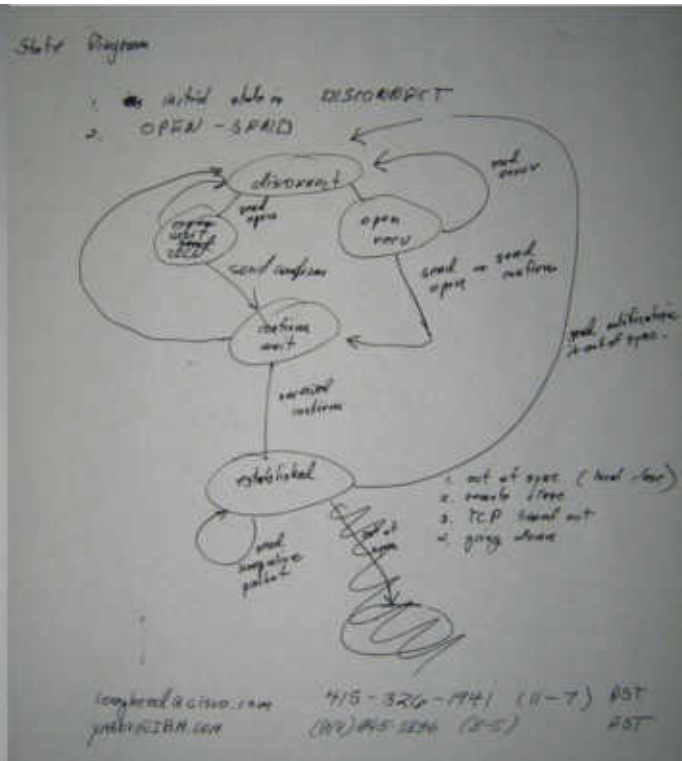 State Diagram
1. initial state is DISCONNECT
2. OPEN - SEND
disconnect
send error
send open
open wait
open recv
send confirm
send open
send confirm
confirm wait
send notification
out of sync.
received confirm
established
1. out of sync (local close)
2. remote close
3. TCP timed out
4. going down
out of sync
send negative packet
lougheed@cisco.com 415-326-1941 (11-7) PST
@IBM.COM EST